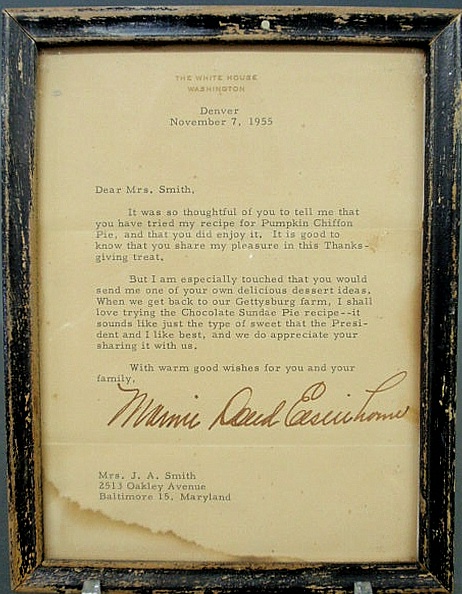 THE WHITE HOUSE
WASHINGTON
Denver
November 7, 1955
Dear Mrs. Smith,
It was so thoughtful of you to tell me that
you have tried my recipe for Pumpkin Chiffon
Pie, and that you did enjoy it. It is good to
know that you share my pleasure in this Thanks-
giving treat.
But I am especially touched that you would
send me one of your own delicious dessert ideas.
When we get back to our Gettysburg farm, I shall
love trying the Chocolate Sundae Pie recipe--it
sounds like just the type of sweet that the Presi-
dent and I like best, and we do appreciate your
sharing it with us.
With warm good wishes for you and your
family,
Mamie Doud Eisenhower
Mrs. J. A. Smith
2513 Oakley Avenue
Baltimore 15, Maryland